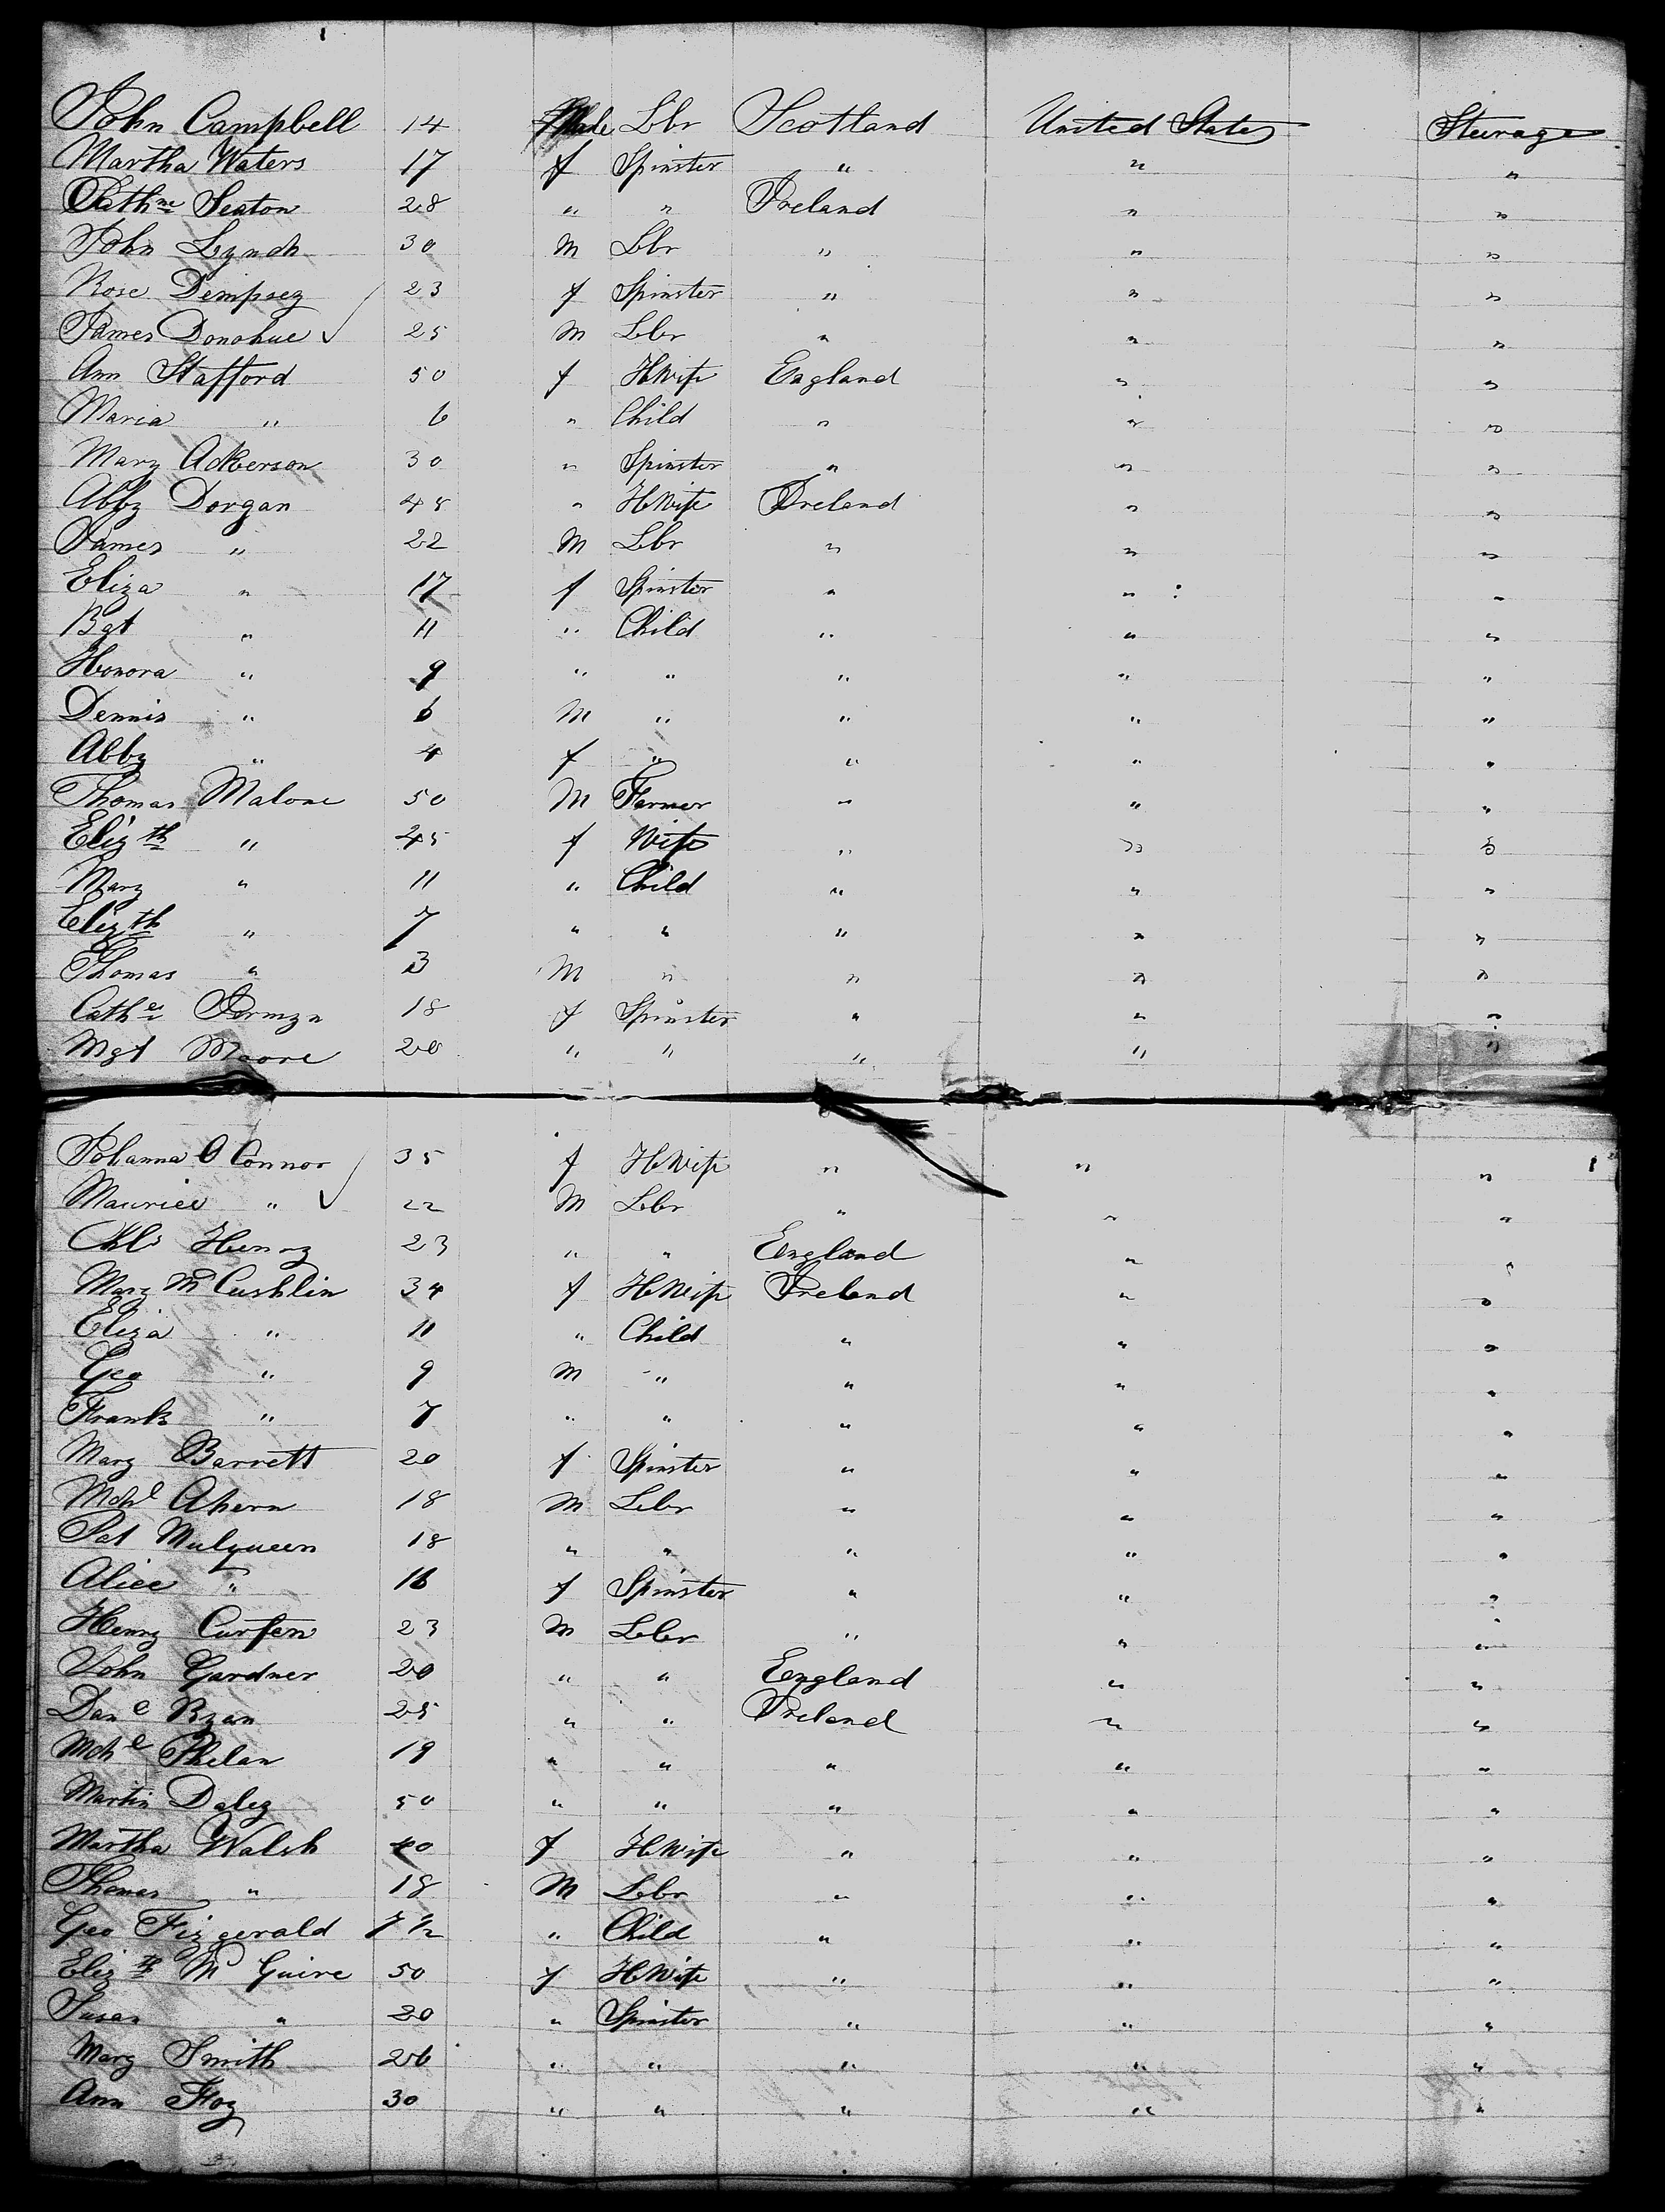 John Campbell 14 Male Lbr Scotland United States Steerage
Martha Waters 17 f Spinster " " "
Cathne Seaton 28 " " Ireland " "
John Lynch 30 M Lbr " " "
Rose Dempsey 23 f Spinster " " "
James Donohue ✓ 25 M Lbr " " "
Ann Stafford 50 f HWife England " "
Maria " 6 " Child " " "
Mary Ackerson 30 " Spinster " " "
Abby Dorgan 45 " HWife Ireland " "
James " 22 M Lbr " " "
Eliza " 17 f Spinster " " "
Bgt " 11 " Child " " "
Honora " 9 " " " " "
Dennis " 6 M " " " "
Abby " 4 f " " " "
Thomas Malone 50 M Farmer " " "
Elizth " 45 f Wife " " "
Mary " 11 " Child " " "
Elizth " 7 " " " " "
Thomas " 3 M " " " "
Cathe 18 f Spinster " " "
Mgt Moore 20 " " " " "
Johanna O Connor 35 f HWife " " "
Maurice " ✓ 22 M Lbr " " "
Chls Henry 23 " " England " "
Mary Mc Cushlin 34 f HWife Ireland " "
Eliza " 11 " Child " " "
Geo " 9 M " " " "
Frank " 7 " " " " "
Mary Barrett 20 f Spinster " " "
Mchl Ahern 18 M Lbr " " "
Pat Mulqueen 18 " " " " "
Alice " 16 f Spinster " " "
Henry Curfen 23 M Lbr " " "
John Gardner 20 " " England " "
Danl Ryan 25 " " Ireland " "
Mchl Phelan 19 " " " " "
Martin Daley 50 " " " " "
Martha Walsh 40 f HWife " " "
Thomas " 18 M Lbr " " "
Geo Fizgerald 7 1/2 " Child " " "
Elizth Mc Guire 50 f HWife " " "
Susan " 20 " Spinster " " "
Mary Smith 26 " " " " "
Ann Foy 30 " " " " "